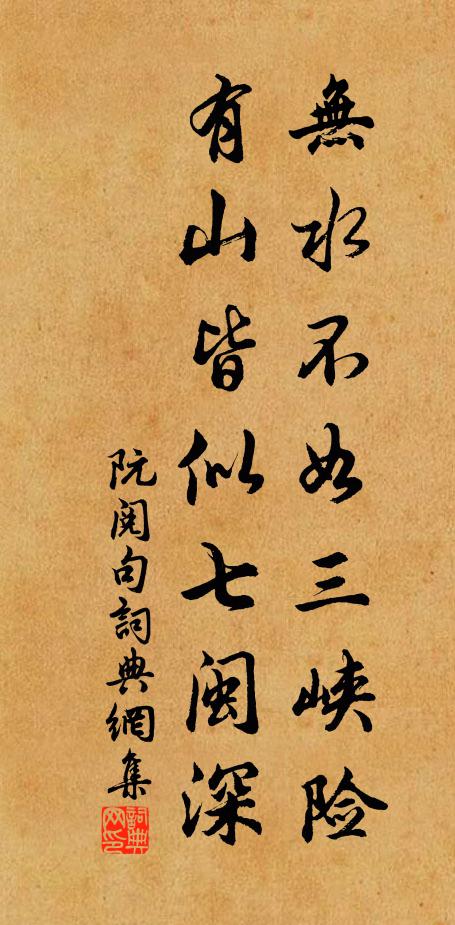 無水不如三峡险
有山皆似七闽深
阮阅句詞典網集
詞典网印